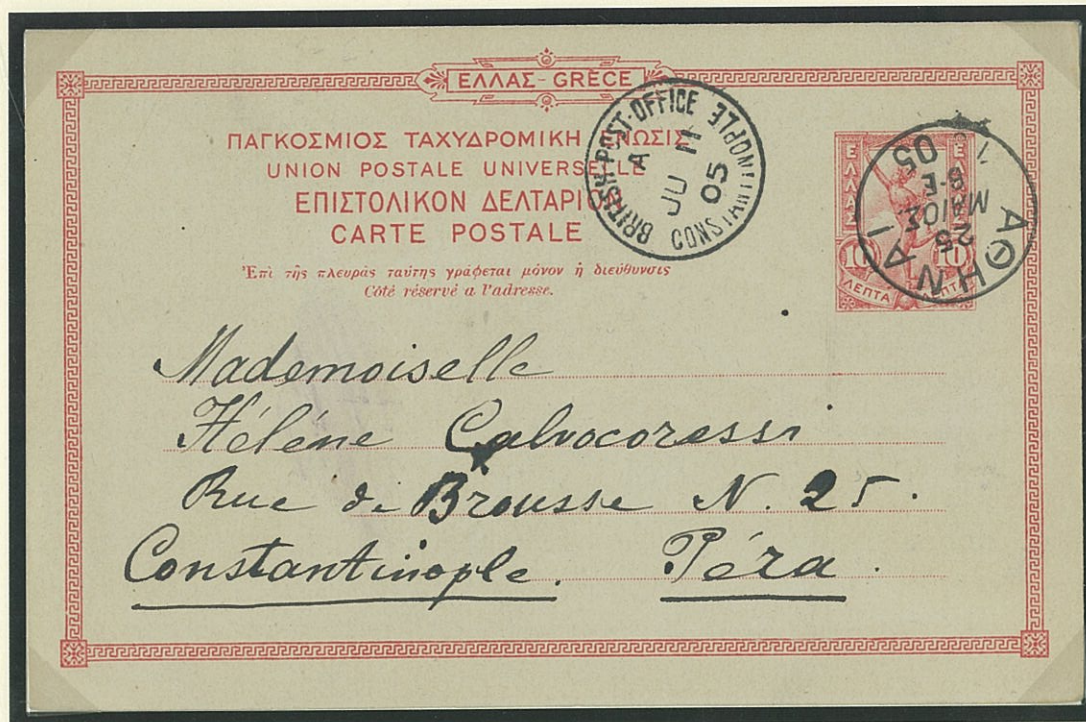 ΕΛΛΑΣ-GRÈCE
ΠΑΓΚΟΣΜΙΟΣ ΤΑΧΥΔΡΟΜΙΚΗ ΕΝΩΣΙΣ
UNION POSTALE UNIVERSELLE
ΕΠΙΣΤΟΛΙΚΟΝ ΔΕΛΤΑΡΙΟΝ
CARTE POSTALE
Ἐπὶ τῆς πλευρᾶς ταύτης γράφεται μόνον ἡ διεύθυνσις
Côté réservé a l'adresse.
BRITISH·POST·OFFICE
A
JU 11
05
CONSTANTINOPLE
ΕΛΛΑΣ
ΕΛΛΑΣ
10 10
ΛΕΠΤΑ ΛΕΠΤΑ
ΑΘΗΝΑΙ 1
25
ΜΑΙΟΣ
8-Ε
05
Mademoiselle
Hélène Calvocoressi
Rue de Brousse N. 25.
Constantinople. Péra.